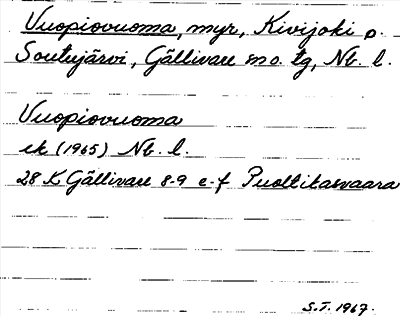 Vuopiovuoma, myr, Kivijoki o.
Soutujärvi, Gällivare so. tg, Nb. l.
Vuopiovuoma
ek (1965) Nb. l.
28 K Gällivare 8-9 e-f Puoltikasvaara
S.T. 1967.